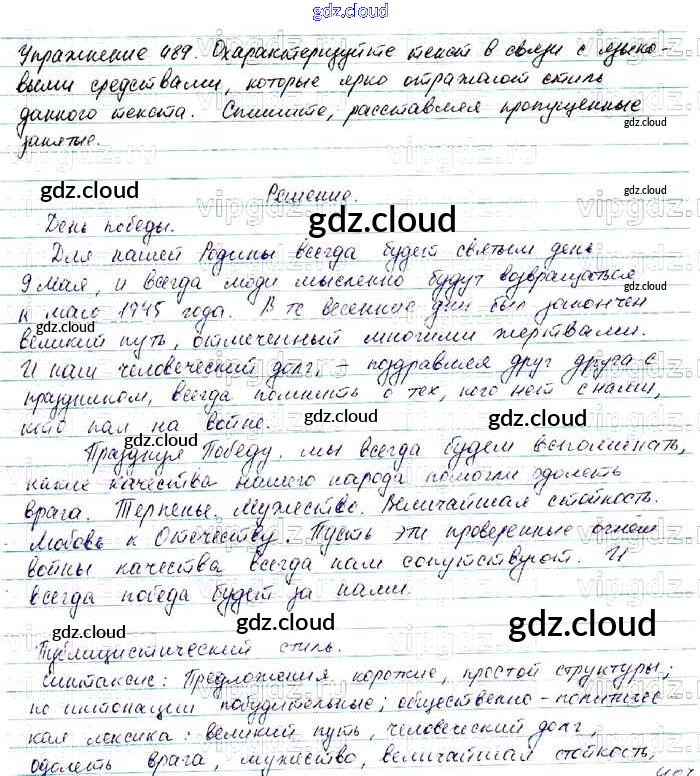 gdz.cloud
Упражнение 489. Охарактеризуйте текст в связи с языко-
выми средствами, которые ярко отражают стиль
данного текста. Спишите, расставляя пропущенные
gdz.cloud
запятые.
gdz.cloud
Решение.
gdz.cloud
gdz.cloud
День победы.
Для нашей Родины всегда будет святым день
gdz.cloud
9 Мая, и всегда люди мысленно будут возвращаться
к маю 1945 года. В те весенние дни был закончен
gdz.cloud
великий путь, отмеченный многими жертвами.
gdz.cloud
И наш человеческий долг, – поздравляя друг друга с
праздником, всегда помнить о тех, кого нет с нами,
кто пал на войне.
gdz.cloud
gdz.cloud
Празднуя Победу, мы всегда будем вспоминать,
какие качества нашего народа помогли одолеть
врага. Терпенье. Мужество. Величайшая стойкость.
Любовь к Отечеству. Пусть эти проверенные огнём
войны качества всегда нам сопутствуют. И
всегда победа будет за нами.
gdz.cloud
gdz.cloud
gdz.cloud
Публицистический стиль.
Синтаксис: Предложения короткие, простой структуры;
по интонации побудительные; общественно-политичес
кая лексика: великий путь, человеческий долг,
gdz.cloud
gdz.cloud
одолеть врага, мужество, величайшая стойкость,